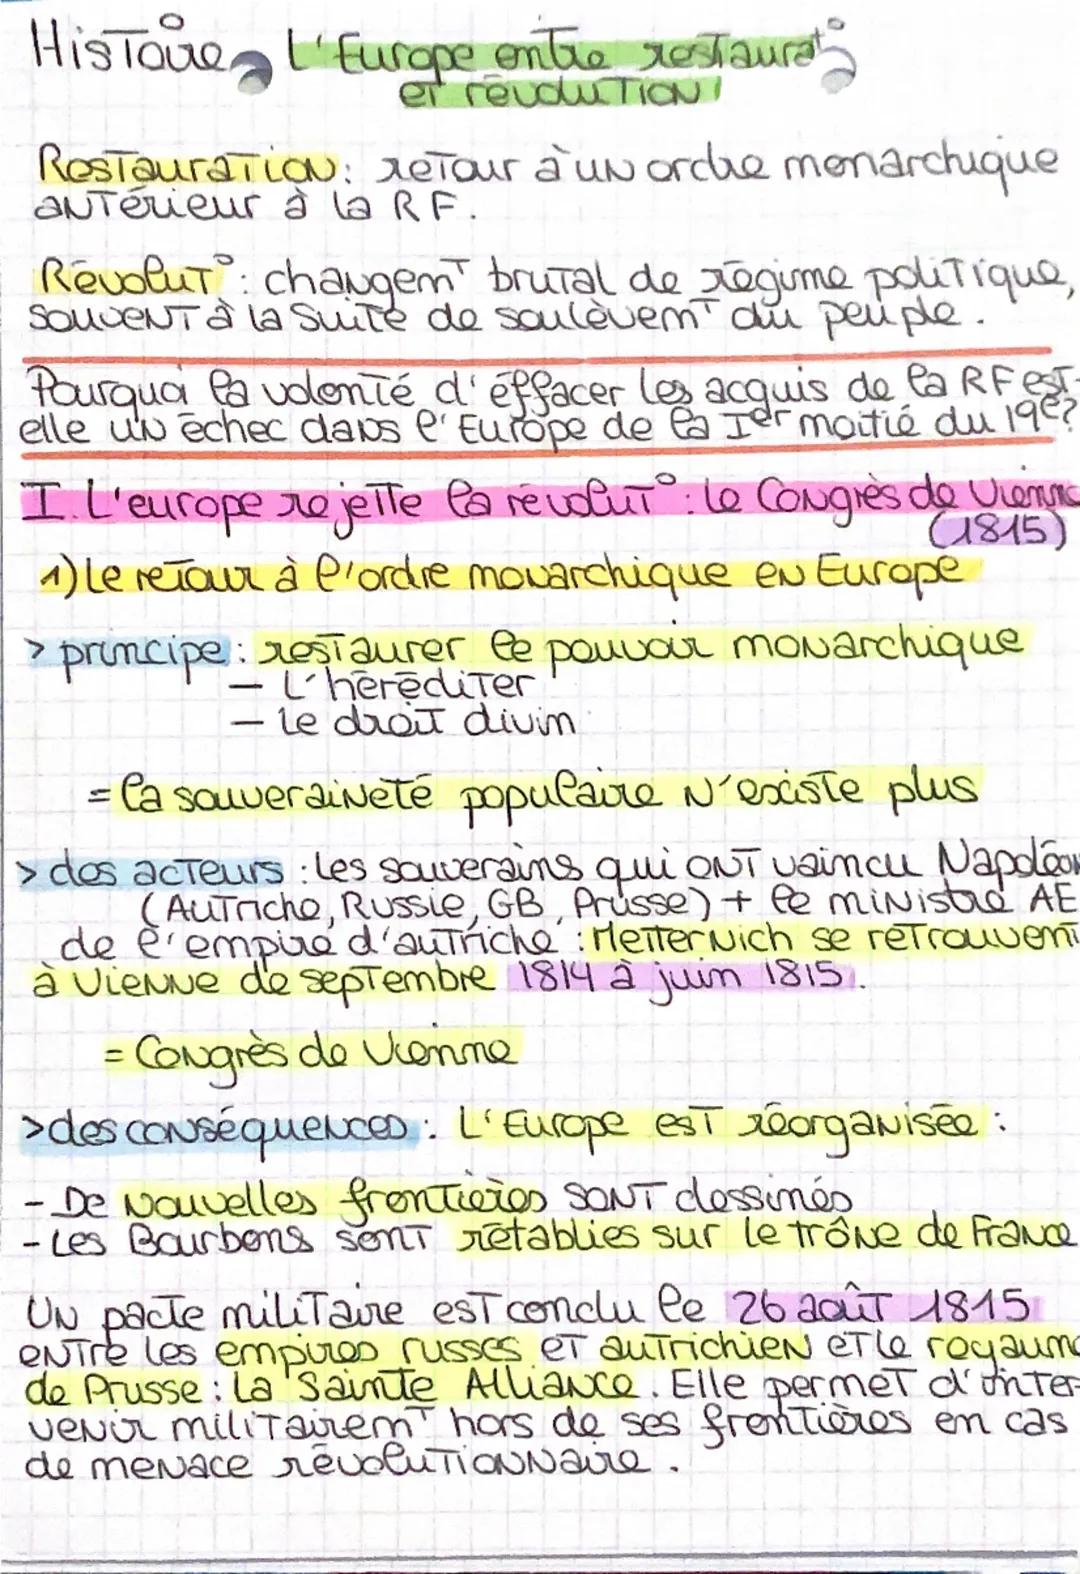 Histoire L'Europe entre restaurat°
et révolution
Restauration: retour à un ordre monarchique
antérieur à la RF.
Révolut°: changemt brutal de régime politique,
souvent à la suite de soulèvemt du peuple.
Pourquoi la volonté d'éffacer les acquis de la RF est-
elle un échec dans l'Europe de la Ier moitié du 19e?
I. L'europe rejette la révolut°: le Congrès de Vienne
(1815)
1) Le retour à l'ordre monarchique en Europe
> principe: restaurer le pouvoir monarchique
- L'héréditer
- le droit divin
= la souveraineté populaire n'existe plus
> des acteurs : les souverains qui ont vaincu Napoléon
(Autriche, Russie, GB, Prusse) + le ministre AE
de l'empire d'autriche : Metternich se retrouvent
à Vienne de septembre 1814 à juin 1815.
= Congrès de Vienne
> des conséquences : L'Europe est réorganisée :
- De nouvelles frontières sont dessinés
- Les Bourbons sont rétablies sur le trône de France
Un pacte militaire est conclu le 26 août 1815
entre les empires russes et autrichien et le royaume
de Prusse : la Sainte Alliance. Elle permet d'inter-
venir militairemt hors de ses frontières en cas
de menace révolutionnaire.